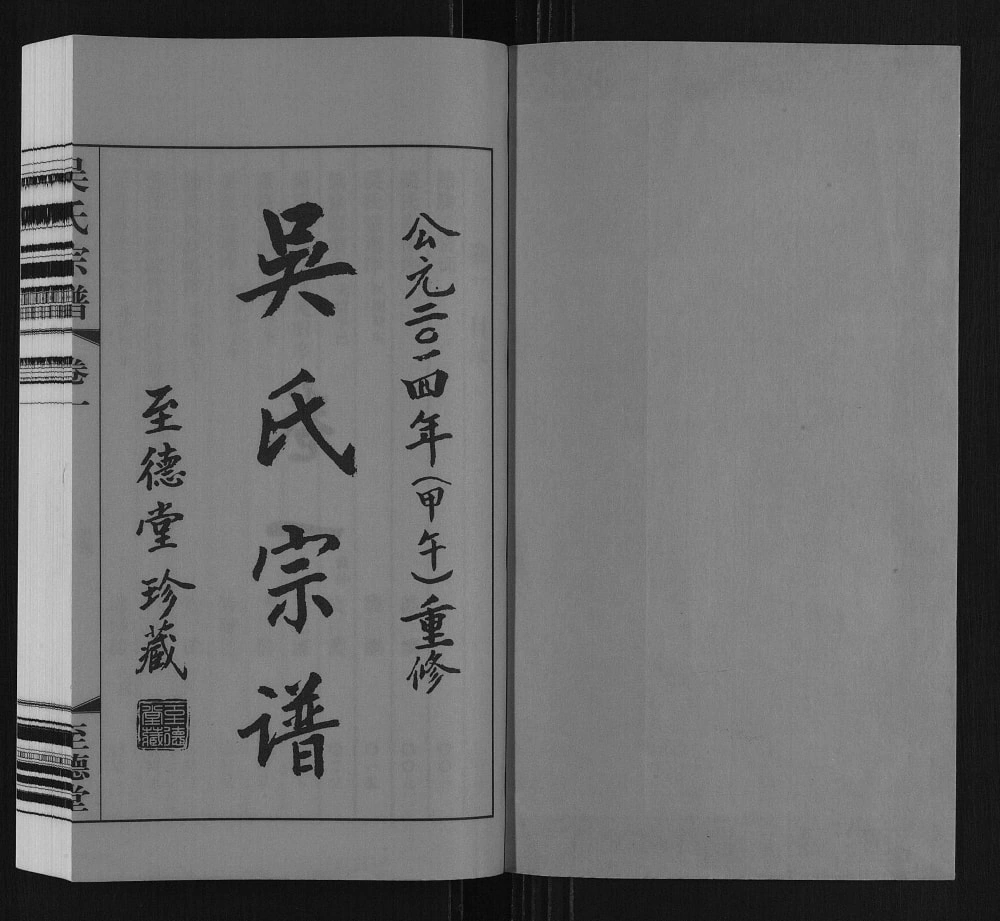 公元二〇一四年(甲午)重修
吳氏宗谱
至德堂珍藏
至德堂藏
吴氏宗谱 卷一 至德堂